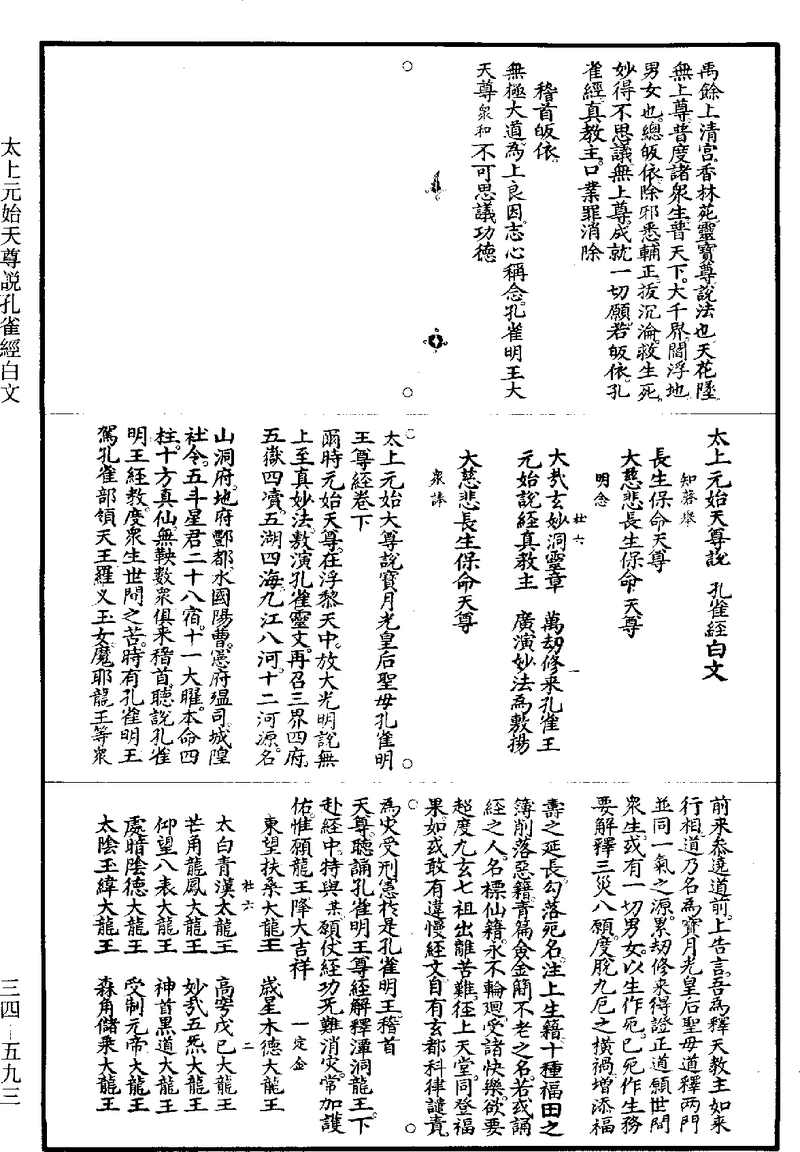 太上元始天尊説孔雀經白文
三四—五九三
禹餘上清宮香林苑靈寶尊說法也天花墜
無上尊普度諸眾生普天下大千界閻浮地
男女也總皈依除邪悉輔正拔沉淪救生死
妙得不思議無上尊成就一切願若皈依孔
雀經真教主口業罪消除
稽首皈依
無極大道為上良因志心稱念孔雀明王大
天尊眾和不可思議功德
太上元始天尊說 孔雀經白文
知蓉舉
長生保命天尊
大慈悲長生保命天尊
明念
壯六 一
大哉玄妙洞靈章 萬劫修來孔雀王
元始說經真教主 廣演妙法為敷揚
大慈悲長生保命天尊
眾諷
太上元始大尊說寶月光皇后聖母孔雀明
王尊經卷下
爾時元始天尊在浮黎天中放大光明說無
上至真妙法敷演孔雀靈文再召三界四府
五嶽四瀆五湖四海九江八河十二河源名
山洞府地府酆都水國陽曹憲府瘟司城隍
社令五斗星君二十八宿十一大曜本命四
柱十方真仙無鞅數眾俱來稽首聽說孔雀
明王經教度眾生世間之苦時有孔雀明王
駕孔雀部領天王羅义玉女魔耶龍王等眾
前來恭遶道前上告言吾為釋天教主如來
行相道乃名為寶月光皇后聖母道釋兩門
並同一氣之源累劫修來得證正道願世間
眾生或有一切男女以生作死已死作生務
要解釋三災八願度脫九厄之橫禍增添福
壽之延長勾落死名注上生籍十種福田之
簿削落惡籍青篇僉金簡不老之名若或誦
經之人名標仙籍永不輪迴受諸快樂欲要
超度九玄七祖出離苦難徑上天堂同登福
果如或敢有違慢經文自有玄都科律譴責
為災受刑憲於是孔雀明王稽首
天尊聽誦孔雀明王尊經解釋潭洞龍王下
赴經中特與某願仗經功死難消災常加護
佑惟願龍王降大吉祥 一定金
東望扶桑大龍王 歲星木德大龍王
壯六 二
太白青漢大龍王 高岑戊己大龍王
芒角龍鳳大龍王 妙哉五炁大龍王
仰望八表大龍王 神首黑道大龍王
處暗陰德大龍王 受制元帝大龍王
太陰玉緯大龍王 森角儲乘大龍王